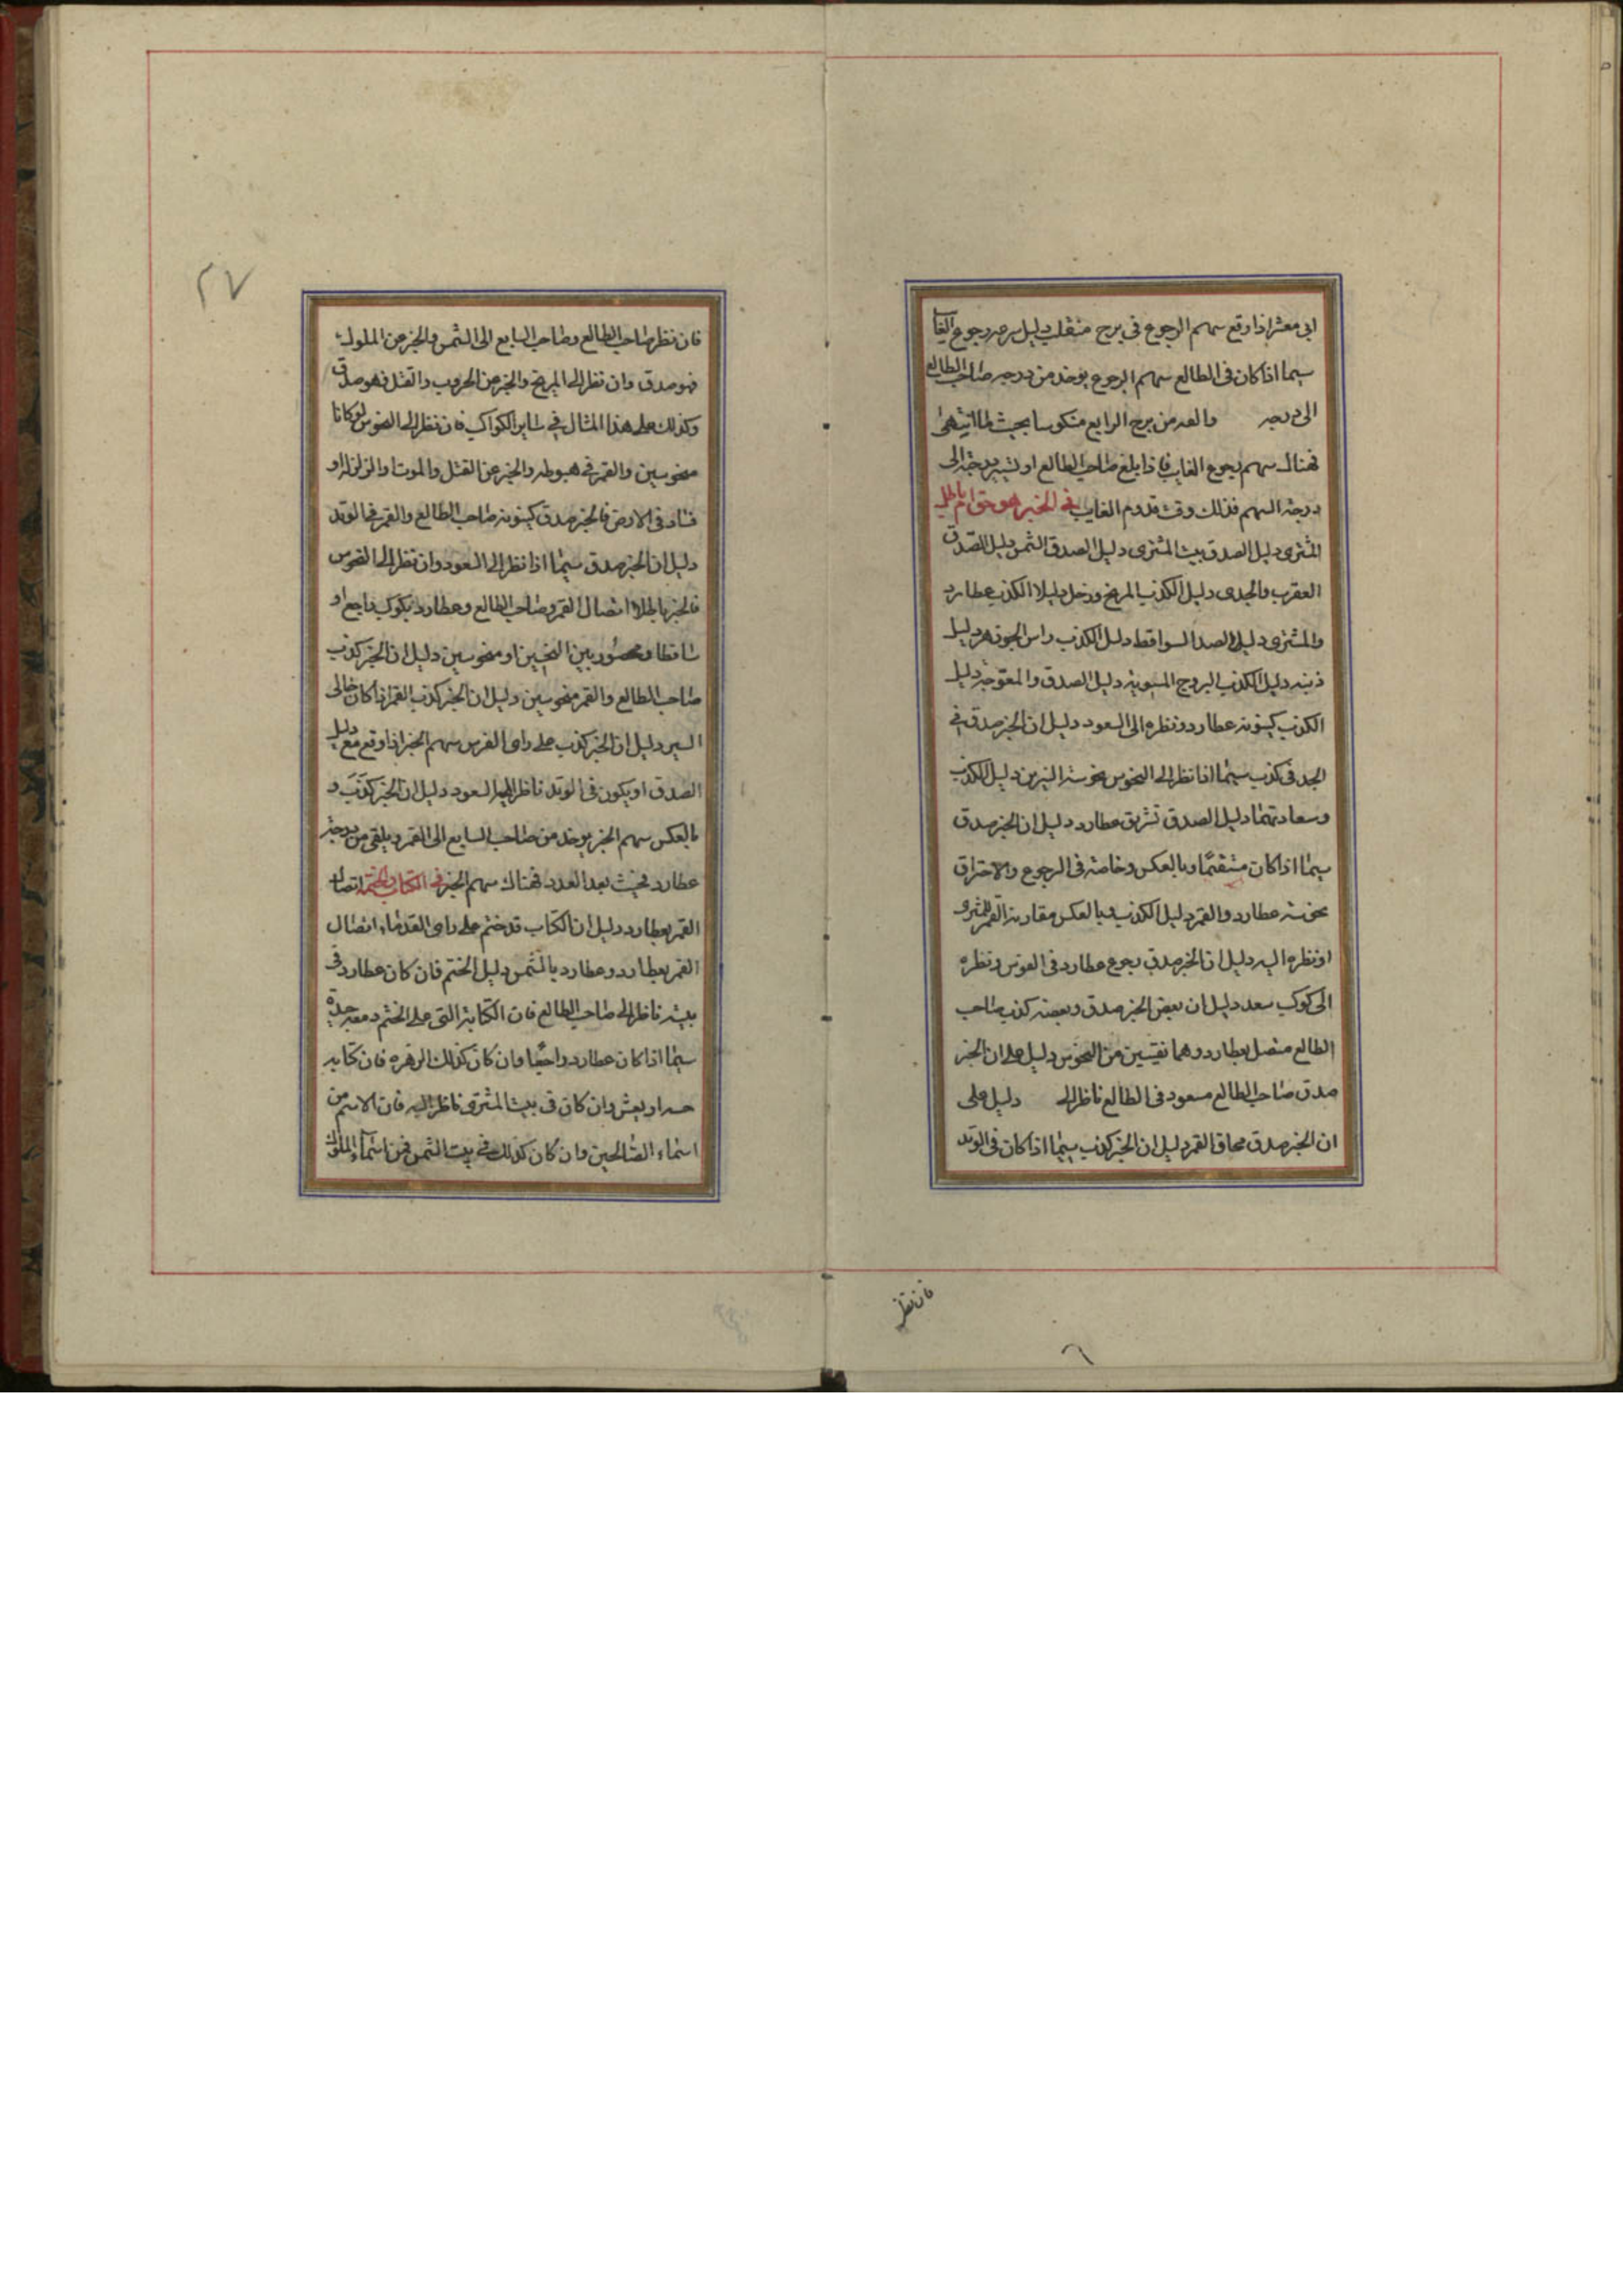 ابي معشر اذا وقع سهم الرجوع في برج منقلب دليل سرعه رجوع الغايب
سيما اذا كان في الطالع سهم الرجوع يوخذ من درجه صاحب الطالع
الى درجه والعد من برج الرابع منكوسا بحيث لما انتهى
فهناك سهم رجوع الغايب فاذا بلغ صاحب الطالع او تسيير درجته الى
درجة السهم فذلك وقت قدوم الغايب في الخبر هو حق ام باطل
المشترى دليل الصدق بيت المشترى دليل الصدق الشمس دليل الصدق
العقرب والجدى دليل الكذب المريخ وزحل دليلا الكذب عطارد
والمشترى دليل الصدا السواقط دليل الكذب راس الجوزهر دليل
ذنبه دليل الكذب البروج المستوية دليل الصدق والمعوجة دليل
الكذب كينونة عطارد ونظره الى السعود دليل ان الخبر صدق في
الجدى كذب سيما اذا نظر الى النحوس نحوسة النيرين دليل الكذب
وسعادتهما دليل الصدق تشريق عطارد دليل ان الخبر صدق
سيما اذا كان مستقيمًا وبالعكس وخاصة في الرجوع والاحتراق
نحوسة عطارد والقمر دليل الكذب وبالعكس مقارنة القمر المشترى
او نظره اليه دليل ان الخبر صدق رجوع عطارد في القوس ونظره
الى كوكب سعد دليل ان بعض الخبر صدق وبعضه كذب صاحب
الطالع متصل بعطارد وهما نقيين من النحوس دليل على ان الخبر
صدق صاحب الطالع مسعود في الطالع ناظر الى دليل على
ان الخبر صدق محاق القمر دليل ان الخبر كذب سيما اذا كان في الوتد
فان نظر
٢٧
فان نظر صاحب الطالع وصاحب السابع الى الشمس والخبر من الملوك
فهو صدق وان نظر الى المريخ والخبر من الحروب والقتل فهو صدق
وكذلك على هذا المثال في ساير الكواكب فان نظر الى النحوس لو كانا
منحوسين والقمر في هبوطه والخبر عن القتل والموت او الزلزلة او
فساد في الارض فالخبر صدق كينونة صاحب الطالع والقمر في الوتد
دليل ان الخبر صدق سيما اذا نظر الى السعود وان نظر الى النحوس
فالخبر باطلا اتصال القمر وصاحب الطالع وعطارد بكوكب راجع او
ساقط او محصور بين النحسين او منحوسين دليل ان الخبر كذب
صاحب الطالع والقمر منحوسين دليل ان الخبر كذب القمر اذا كان خالى
السير دليل ان الخبر كذب على راى الفرس سهم الخبر اذا وقع مع دليل
الصدق او يكون في الوتد ناظر اليها السعود دليل ان الخبر كذب و
بالعكس سهم الخبر يوخذ من صاحب السابع الى القمر ويلقى من درجة
عطارد فحيث بعد العدد فهناك سهم الخبر في الكتاب والختم اتصال
القمر بعطارد دليل ان الكتاب قد ختم على راى القدماء اتصال
القمر بعطارد وعطارد بالشمس دليل الختم فان كان عطارد في
بيته ناظر الى صاحب الطالع فان الكتابة التى على الختم
سيما اذا كان عطارد فان كان كذلك الزهره فان كتابه
وان كان في بيت المشترى ناظر اليه فان الاسم من
اسماء الصالحين وان كان كذلك في بيت الشمس فمن اسماء الملوك